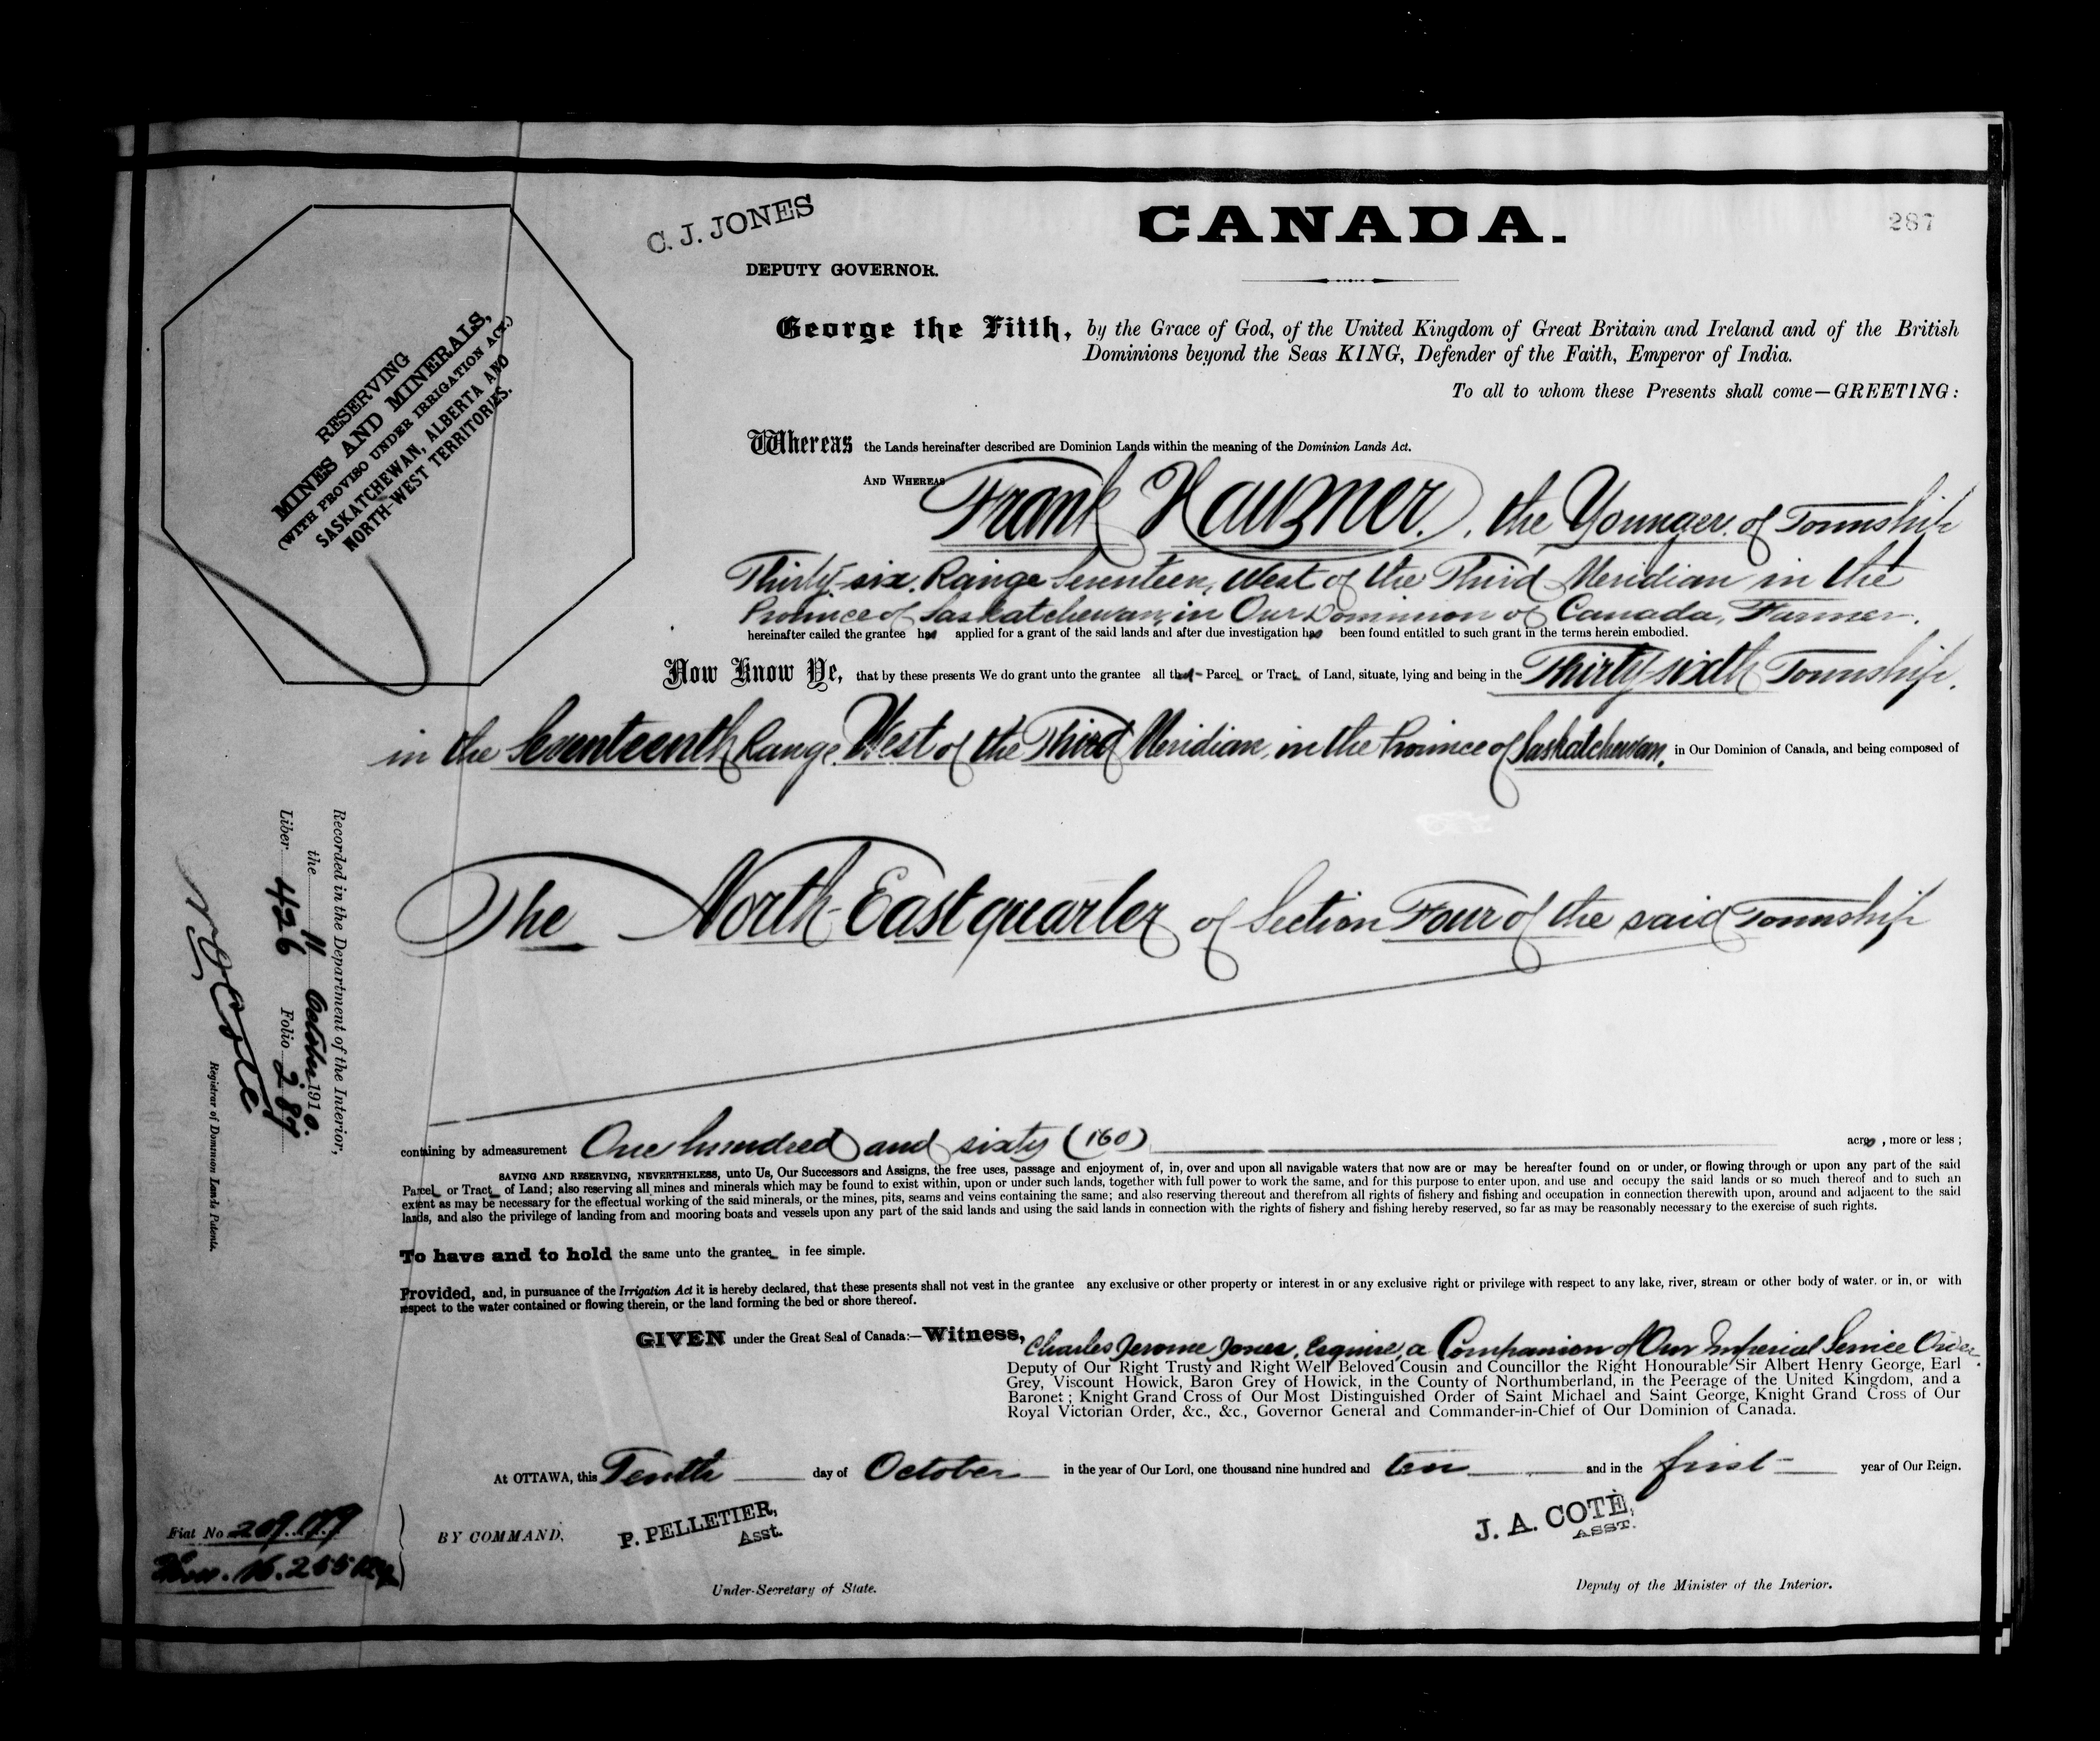 287
C. J. JONES
DEPUTY GOVERNOR.
CANADA.
RESERVING
MINES AND MINERALS,
(WITH PROVISO UNDER IRRIGATION ACT.)
SASKATCHEWAN, ALBERTA AND
NORTH-WEST TERRITORIES.
George the Fifth, by the Grace of God, of the United Kingdom of Great Britain and Ireland and of the British
Dominions beyond the Seas KING, Defender of the Faith, Emperor of India.
To all to whom these Presents shall come—GREETING:
Whereas the Lands hereinafter described are Dominion Lands within the meaning of the Dominion Lands Act.
AND WHEREAS Frank Hauzner, the Younger, of Township
Thirty-six, Range Seventeen, West of the Third Meridian in the
Province of Saskatchewan, in Our Dominion of Canada, Farmer,
hereinafter called the grantee has applied for a grant of the said lands and after due investigation has been found entitled to such grant in the terms herein embodied.
Now Know Ye, that by these presents We do grant unto the grantee all that Parcel or Tract of Land, situate, lying and being in the Thirty-sixth Township,
in the Seventeenth Range, West of the Third Meridian, in the Province of Saskatchewan, in Our Dominion of Canada, and being composed of
The North-East quarter of Section Four of the said Township
containing by admeasurement One hundred and sixty (160) acres, more or less;
SAVING AND RESERVING, NEVERTHELESS, unto Us, Our Successors and Assigns, the free uses, passage and enjoyment of, in, over and upon all navigable waters that now are or may be hereafter found on or under, or flowing through or upon any part of the said
Parcel or Tract of Land; also reserving all mines and minerals which may be found to exist within, upon or under such lands, together with full power to work the same, and for this purpose to enter upon, and use and occupy the said lands or so much thereof and to such an
extent as may be necessary for the effectual working of the said minerals, or the mines, pits, seams and veins containing the same; and also reserving thereout and therefrom all rights of fishery and fishing and occupation in connection therewith upon, around and adjacent to the said
lands, and also the privilege of landing from and mooring boats and vessels upon any part of the said lands and using the said lands in connection with the rights of fishery and fishing hereby reserved, so far as may be reasonably necessary to the exercise of such rights.
To have and to hold the same unto the grantee in fee simple.
Provided, and, in pursuance of the Irrigation Act it is hereby declared, that these presents shall not vest in the grantee any exclusive or other property or interest in or any exclusive right or privilege with respect to any lake, river, stream or other body of water, or in, or with
respect to the water contained or flowing therein, or the land forming the bed or shore thereof.
GIVEN under the Great Seal of Canada:—Witness, Charles Jerome Jones, Esquire, a Companion of Our Imperial Service Order,
Deputy of Our Right Trusty and Right Well Beloved Cousin and Councillor the Right Honourable Sir Albert Henry George, Earl
Grey, Viscount Howick, Baron Grey of Howick, in the County of Northumberland, in the Peerage of the United Kingdom, and a
Baronet; Knight Grand Cross of Our Most Distinguished Order of Saint Michael and Saint George, Knight Grand Cross of Our
Royal Victorian Order, &c., &c., Governor General and Commander-in-Chief of Our Dominion of Canada.
At OTTAWA, this Tenth day of October in the year of Our Lord, one thousand nine hundred and ten and in the first year of Our Reign.
BY COMMAND,
P. PELLETIER,
Asst.
Under-Secretary of State.
J. A. COTÉ,
ASST.
Deputy of the Minister of the Interior.
Recorded in the Department of the Interior,
the 11 October 1910.
Liber 426 Folio 287
N O Coté
Registrar of Dominion Lands Patents.
Fiat No.